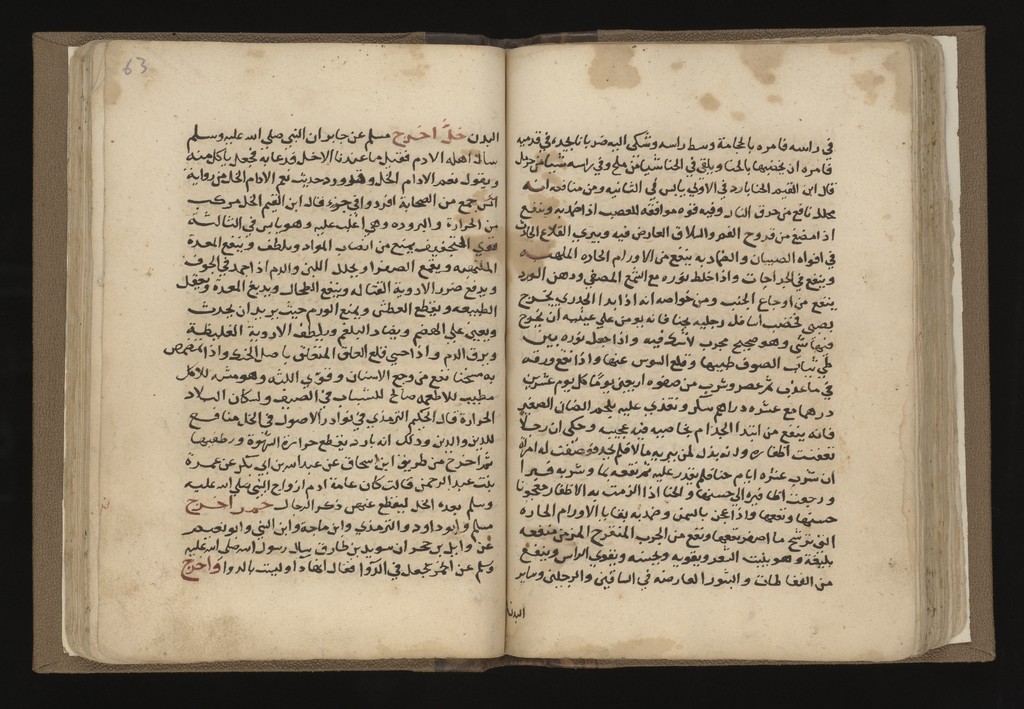 في راسه فامره بالحجامة وسط راسه وشكى اليه ضربانا يجده في قدميه
فامره ان يخضبها بالحنا ويلقي في الحنا شيا من ملح وفي راسه شيا من
قال ابن القيم الحنا بارد في الاولى يابس في الثانيه ومن منافعه انه
محلل نافع من حرق النار وفيه قوه موافقه للعصب اذا ضمد به وينفع
اذا مضغ من قروح الفم والسلاق العارض فيه ويبري القلاع الحادث
في افواه الصبيان والضماد به ينفع من الاورام الحاره الملهبه
وينفع في الجراحات واذا خلط نوره مع الشمع المصفي ودهن الورد
ينفع من اوجاع الجنب ومن خواصه انه اذا بدا الجدري يخرج
بصبي فخضب اسافل رجليه بحنا فانه يومن على عينيه ان يخرج
فيها شي وهو صحيح مجرب لا شك فيه واذا جعل نوره بين
طي ثياب الصوف طيبها وقلع السوس عنها واذا نقع ورقه
في ما عذب ثم عصر وشرب من صفوه اربعين يوما كل يوم عشرين
درهما مع عشره دراهم سكر وتغذي عليه بلحم الضان الصغير
فانه ينفع من ابتدا الجذام بخاصيه فيه عجيبه وحكى ان رجلا
تعفنت اظفاره وانه بذل لمن يبريه مالا فلم يجد فوصفت له امراة
ان شرب عشره ايام حنا فلم يقدر عليه ثم نقعه بما وشربه فبرا
ورجعت اظافيره الى حسنها والحنا اذا الزمت به الاظفار معجونا
حسنها ونفعها واذا عجن بالسمن وضمد به بقايا الاورام الحاره
التي ترشح ما اصفر نفعها ونفع من الجرب المتقرح المزمن منفعه
بليغة وهو ينبت الشعر ويقويه ويحسنه ويقوي الراس وينفع
من النفاطات والبثور العارضه في الساقين والرجلين وساير
البدن
63
البدن خل اخرج مسلم عن جابر ان النبي صلى الله عليه وسلم
سال اهله الادم فقيل ما عندنا الا خل فدعا به فجعل ياكل منه
ويقول نعم الادام الخل وقد ورد حديث نعم الادام الخل من رواية
جمع من الصحابة افردوا في جزء قال ابن القيم الخل مركب
من الحرارة والبروده وهي اغلب عليه وهو يابس في الثالثة
قوي التجفيف يمنع من انصباب المواد ويلطف وينفع المعدة
الملتهبه ويقمع الصفرا ويحلل اللبن والدم اذا جمد في الجوف
ويدفع ضرر الادوية القتاله وينفع الطحال ويدبغ المعدة ويعقل
الطبيعه ويقطع العطش ويمنع الورم حيث يريد ان يحدث
ويعين على الهضم ويضاد البلغم ويلطف الادوية الغليظة
ويرق الدم واذا حسي قلع العلق المتعلق باصل الحنك واذا تمضمض
به سخنا نفع من وجع الاسنان وقوي اللثه وهو مشه للاكل
مطيب للاطعمه صالح للشباب في الصيف ولسكان البلاد
الحارة قال الحكيم الترمذي في نوادر الاصول في الخل منافع
للدين والدين وذلك انه بارد يقطع حرارة الشهوة ويطفيها
ثم اخرج من طريق ابن اسحاق عن عبد الله بن ابي بكر عن عمرة
بنت عبد الرحمن قالت كان عامة ادم ازواج النبي صلى الله عليه
وسلم بعده الخل ليقطع عنهن ذكر الرجال خمر اخرج
مسلم وابو داود والترمذي وابن ماجة وابن السني وابو نعيم
عن وايل بن حجر ان سويد بن طارق سال رسول الله صلى الله عليه
وسلم عن الخمر تجعل في الدوا فقال انها دا وليست بالدوا واخرج